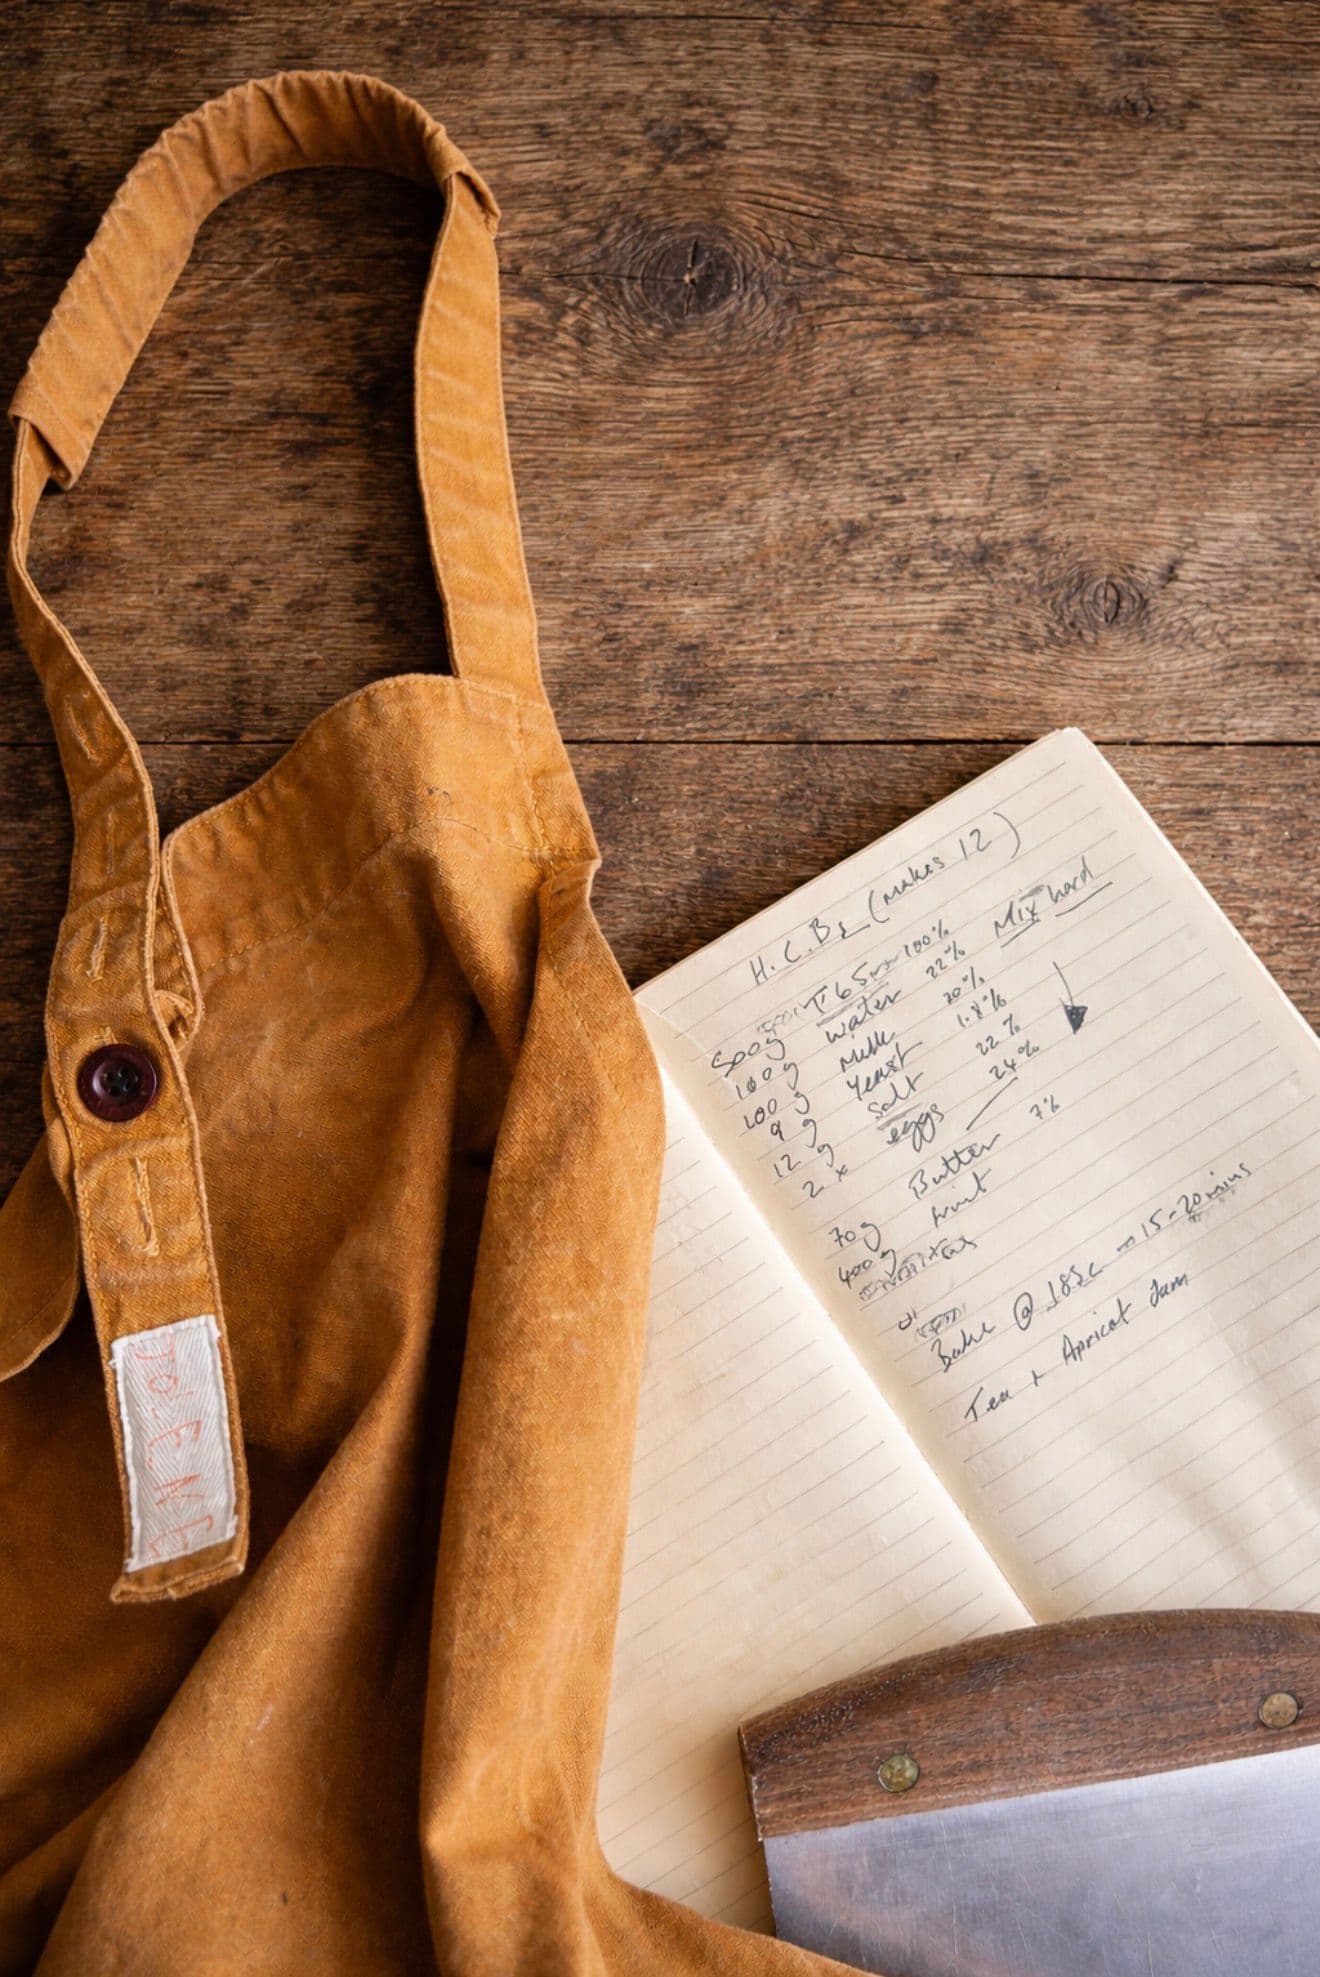 H.C.Bs (makes 12)
500g T65 100%
100g water 22% Mix hard
100g Milk 20%
9g Yeast 1.8%
12g Salt 22%
2x eggs 24%
70g Butter 7%
400g fruit
Bake @ 185c 15-20mins
Tea + Apricot Jam